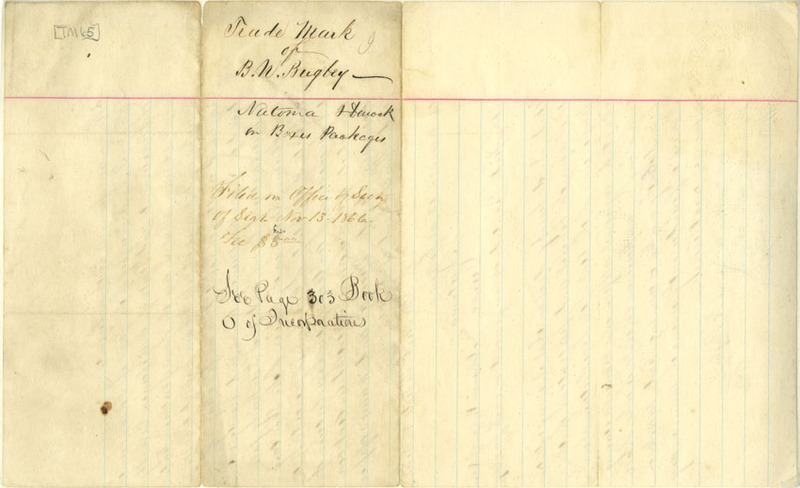 [TM65]
Trade Mark
of
B. N. Bugbey
Natoma
on Boxes Packages
Filed in Office of Secy
of State Nov 13. 1866
Fee $5
See Page 303 Book
O of Incorporations